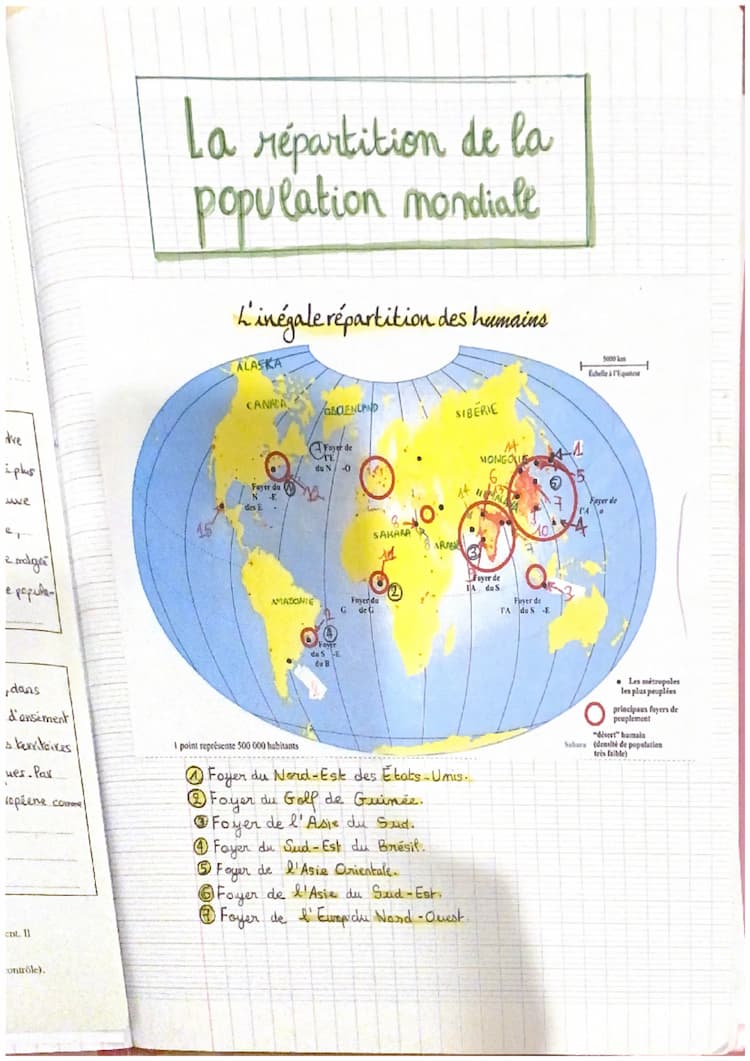 La répartition de la
population mondiale
L'inégale répartition des humains
5000 km
Échelle à l'Equateur
ALASKA
CANADA
GROENLAND
SIBÉRIE
MONGOLIE
HIMALAYA
SAHARA
ARABIE
AMAZONIE
7 Foyer de
l'E
du N -O
Foyer du 1
N -E
des E
Foyer de
l'A o
3
Foyer de
l'A du S
Foyer de
l'A du S -E
2
Foyer du
G de G
4
Foyer
du S -E
du B
Les métropoles
les plus peuplées
principaux foyers de
peuplement
"désert" humain
Sahara (densité de population
très faible)
1 point représente 500 000 habitants
1 Foyer du Nord-Est des États-Unis.
2 Foyer du Golf de Guinée.
3 Foyer de l'Asie du Sud.
4 Foyer du Sud-Est du Brésil.
5 Foyer de l'Asie Orientale.
6 Foyer de l'Asie du Sud-Est.
7 Foyer de l'Europ du Nord-Ouest
plus
e,
e malgré
e popula-
, dans
d'ensiment
s territoires
ues. Pas
opéene comme
ent. II
ontrôle).